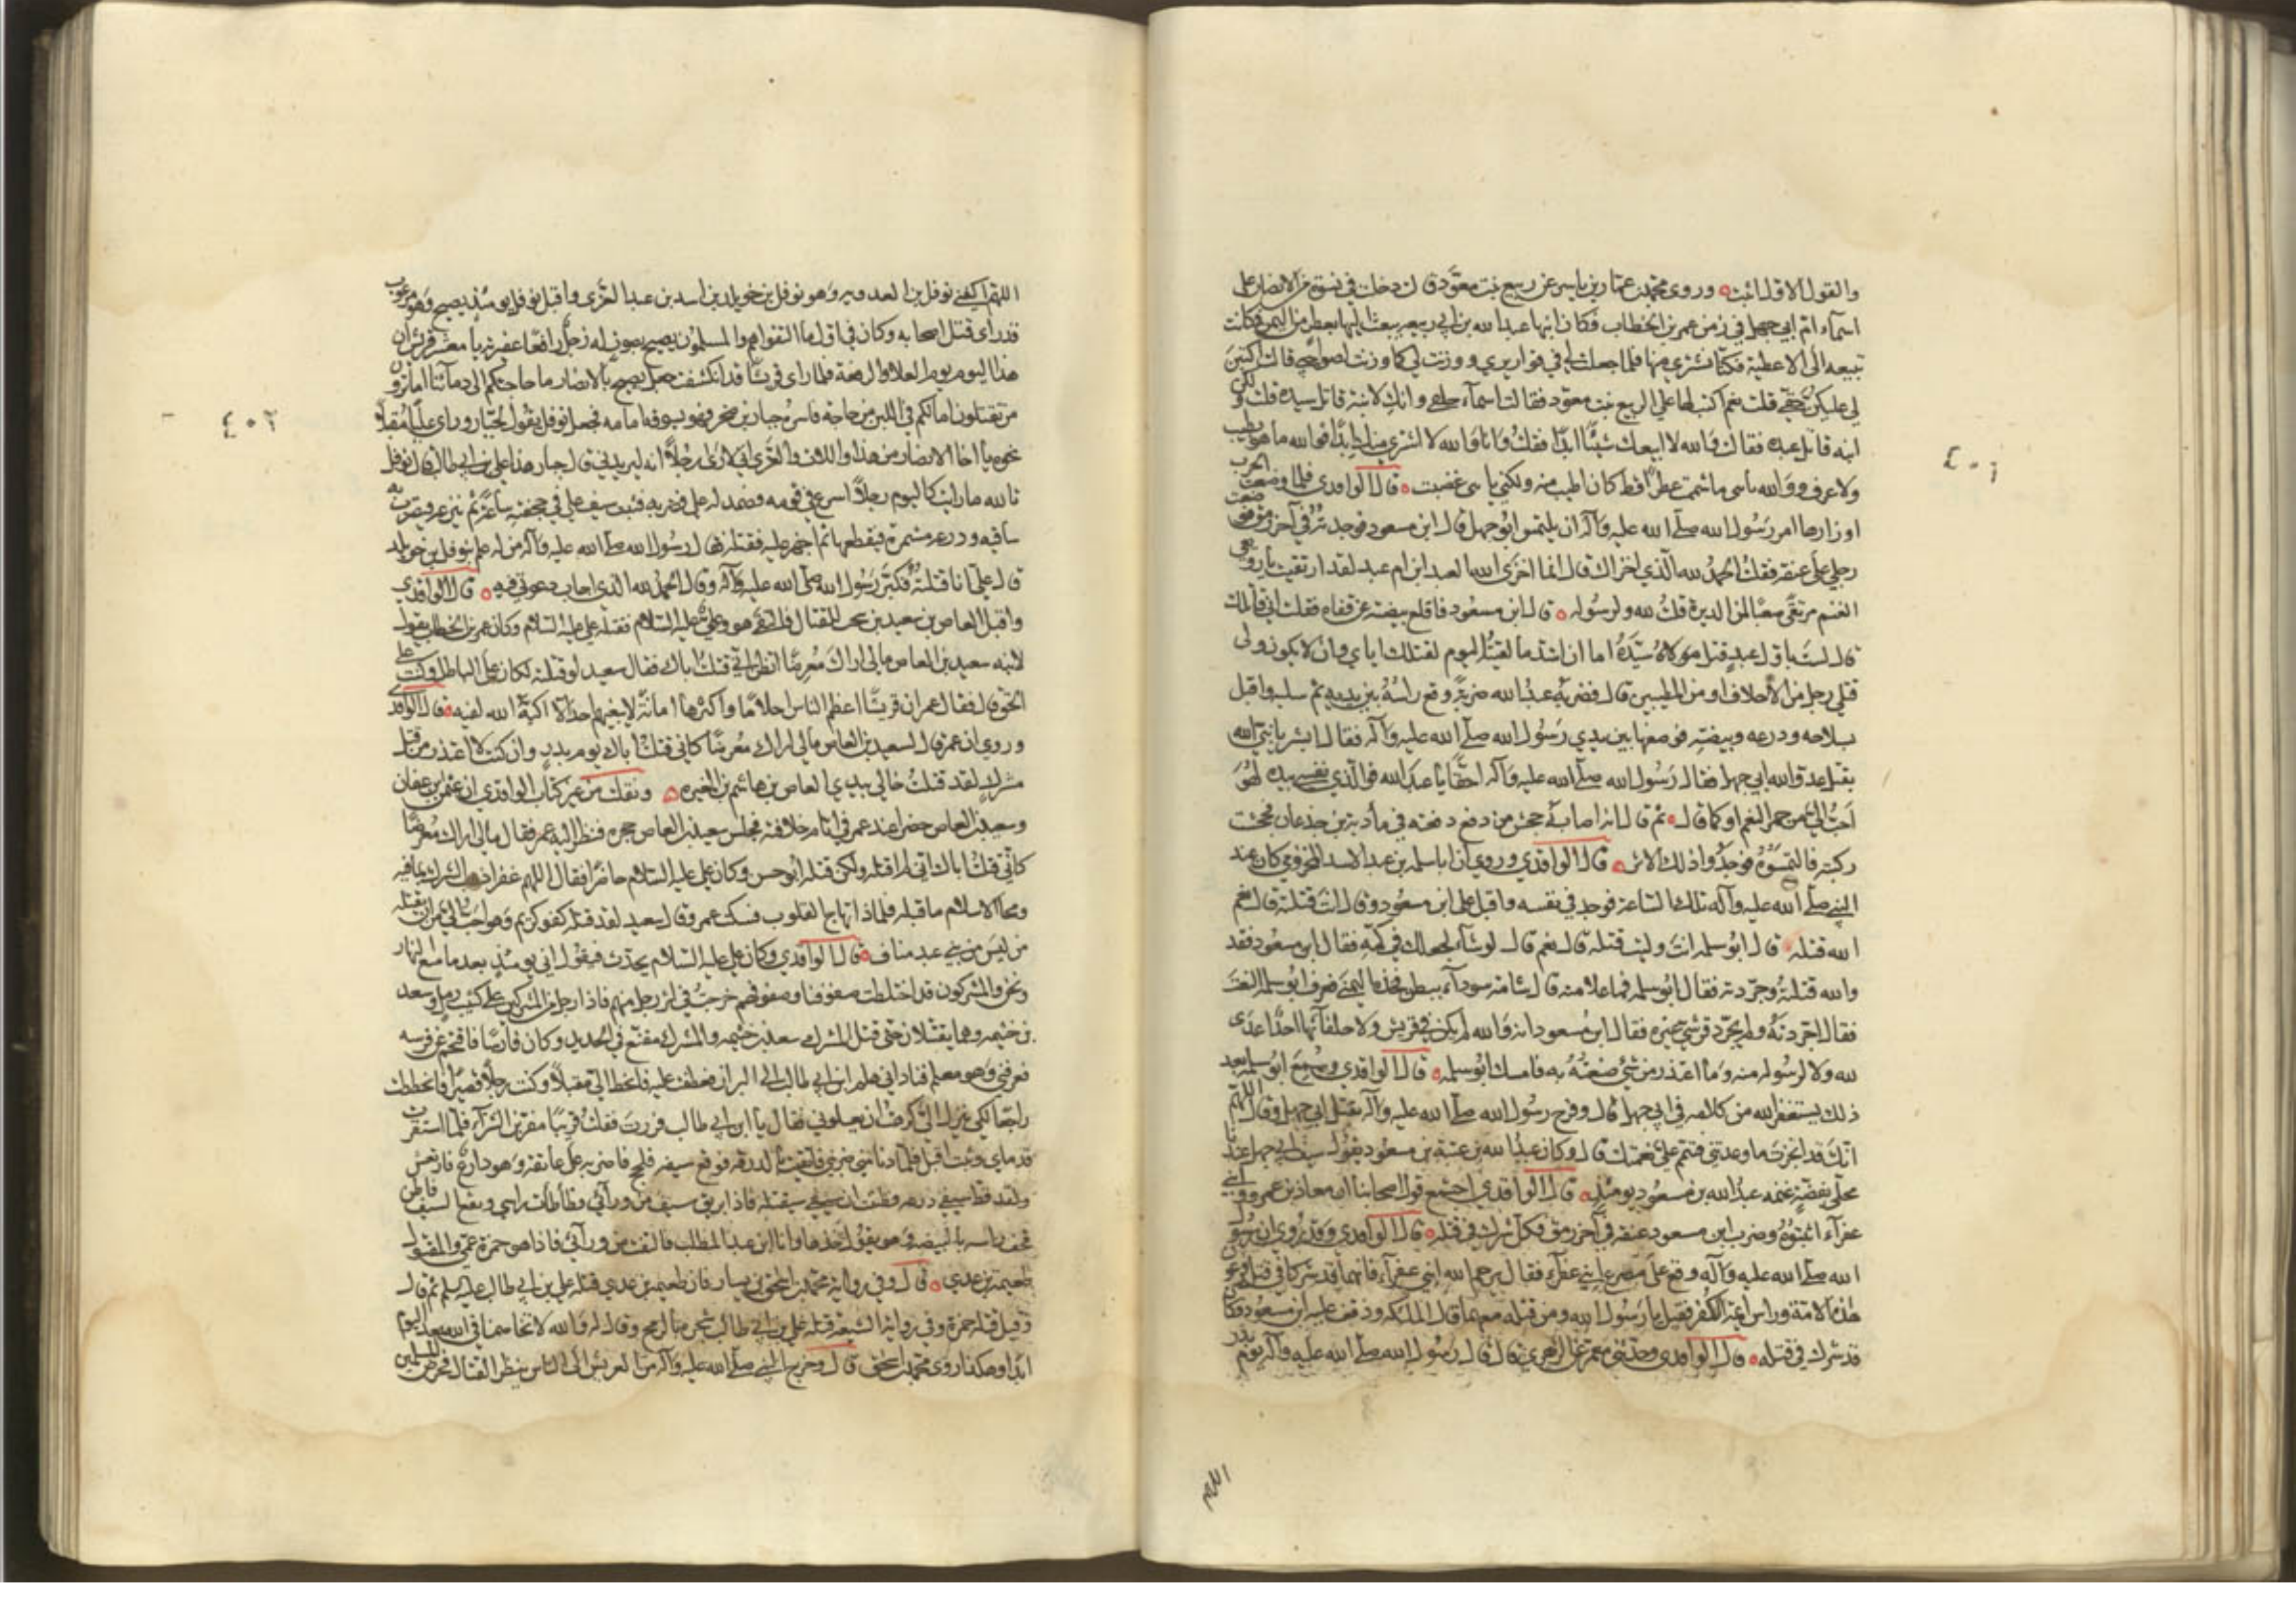 والقول الاول اثبت ٥ وروى محمد بن عمار بن ياسر عن ربيع بنت معوذ قالت دخلت في نسوة من الانصار على
اسماء ام ابي جهل في زمن عمر بن الخطاب فكان ابنها عبد الله بن ابي ربيعه يبعث اليها بعطر من اليمن فكانت
تبيعه الى الاعطية فكنا نشتري منها فلما جعلت لي في قواريري ووزنت لي كما وزنت لصواحبي قالت اكتبن
لي عليكن حقي قلت نعم اكتب لها على الربيع بنت معوذ فقالت اسماء حلقى وانك لابنة قاتل سيده قلت لا ولكن
ابنه قاتل عبده فقالت والله لا ابيعك شيئا ابدا فقلت وانا والله لا اشتري منك ابدا فوالله ما هو بطيب
ولا عرف ووالله يا بني ما شممت عطرا قط كان اطيب منه ولكني يا بني غضبت ٥ قال الواقدي فلما وضعت الحرب
اوزارها امر رسول الله صلى الله عليه وآله ان يلتمس ابو جهل قال ابن مسعود فوجدته في آخر رمق فوضعت
رجلي على عنقه فقلت الحمد لله الذي اخزاك قال انما اخزى الله العبد ابن ام عبد لقد ارتقيت يا رويعي
الغنم مرتقى صعبا لمن الدبرة قلت لله ولرسوله ٥ قال ابن مسعود فاقلع بيضته عن قفاه فقلت اني قاتلك
قال لست باول عبد قتل مولاه سيده اما ان اشد ما لقيته اليوم لقتلك اياي وان لا يكون ولى
قتلي رجل من الاحلاف او من المطيبين قال فضربه عبد الله ضربة وقع راسه بين يديه ثم سلبه واقبل
بسلاحه ودرعه وبيضته فوضعها بين يدي رسول الله صلى الله عليه وآله فقال ابشر يا نبي الله
بقتل عدو الله ابي جهل فقال رسول الله صلى الله عليه وآله احقا يا عبد الله فوالذي نفسي بيده لهو
احب الي من حمر النعم او كما قال ٥ ثم قال انه اصابه جحش من دفع دفعته في مأدبة بن جذعان فجحشت
ركبته فالتمسوه فوجدوا ذلك الاثر ٥ قال الواقدي وروي ان ابا سلمه بن عبد الاسد المخزومي كان عند
النبي صلى الله عليه وآله تلك الساعة فوجد في نفسه واقبل على ابن مسعود وقال انت قتلته قال نعم
الله قتله قال ابو سلمه انت وليت قتله قال نعم قال لو شاء لجعلك في كمه فقال ابن مسعود فقد
والله قتلته وجردته فقال ابو سلمه فما علامته قال شامة سوداء ببطن فخذه اليمنى فعرف ابو سلمه النعت
فقال اجردته ولم يجرد قرشي غيره فقال ابن مسعود انه والله لم يكن في قريش ولا حلفائها احد اعدى
لله ولا لرسوله منه وما اعتذر من شي صنعته به فامسك ابو سلمه ٥ قال الواقدي وسمع ابو سلمه بعد
ذلك يستغفر الله من كلامه في ابي جهل قال وفرح رسول الله صلى الله عليه وآله بقتل ابي جهل وقال اللهم
انك قد انجزت ما وعدتني فتمم علي نعمتك قال وكان عبد الله بن عتبة بن مسعود يقول سيف ابي جهل عندنا
محلى بفضة غنمه عبد الله بن مسعود يومئذ ٥ قال الواقدي اجتمع قول اصحابنا ان معاذ بن عمرو وابني
عفراء اثبتوه وضرب ابن مسعود عنقه في آخر رمق فكل شرك في قتله ٥ قال الواقدي وقد روي ان رسول
الله صلى الله عليه وآله وقف على مصرع ابني عفراء فقال يرحم الله ابني عفراء فانهما قد شركا في قتل فرعون
هذه الامة وراس ائمة الكفر فقيل يا رسول الله ومن قتله معهما قال الملئكة وذفف عليه ابن مسعود فكان
قد شرك في قتله ٥ قال الواقدي وحدثني معمر عن الزهري قال قال رسول الله صلى الله عليه وآله يوم بدر
اللهم
٤٠١
اللهم اكفني نوفل بن العدوية وهو نوفل بن خويلد بن اسد بن عبد العزى واقبل نوفل يومئذ يصيح وهو مرعوب
قد رأى قتل اصحابه وكان في اول ما التقوا هم والمسلمون يصيح بصوت له زجل رافعا عقيرته يا معشر قريش ان
هذا اليوم يوم العلا والرفعة فلما رأى قريشا قد انكشفت جعل يصيح بالانصار ما حاجتكم الى دمائنا اما ترون
من تقتلون اما لكم في اللبن من حاجة فاسره جبار بن صخر فهو يسوقه امامه فجعل نوفل يقول لجبار ورأى عليا مقبلا
نحوه يا اخا الانصار من هذا واللات والعزى اني لارى رجلا انه ليريدني قال جبار هذا علي بن ابي طالب قال نوفل
تالله ما رايت كاليوم رجلا اسرع في قومه فصمد له علي فضربه فنشب سيف علي في حجفته ساعة ثم نزعه فيضرب به
ساقيه ودرعه مشمرة فيقطعها ثم اجهز عليه فقتله فقال رسول الله صلى الله عليه وآله من له علم بنوفل بن خويلد
قال علي انا قتلته فكبر رسول الله صلى الله عليه وآله وقال الحمد لله الذي اجاب دعوتي فيه ٥ قال الواقدي
واقبل العاص بن سعيد يبحث للقتال فالتقى هو وعلي عليه السلام فقتله علي عليه السلام وكان عمر بن الخطاب يقول
لابنه سعيد بن العاص مالي اراك معرضا اتظن اني قتلت اباك فقال سعيد لو قتلته لكان على الباطل وكنت على
الحق قال فقال عمر ان قريشا اعظم الناس احلاما واكثرها امانة لا يبغيهم احد الا اكبه الله لفيه ٥ قال الواقدي
وروي ان عمر قال لسعيد بن العاص مالي اراك معرضا كاني قتلت اباك يوم بدر وان كنت لا اعتذر من قتل
مشرك لقد قتلت خالي بيدي العاص بن هاشم بن المغيره ٥ ونقلت من غير كتاب الواقدي ان عثمن بن عفان
وسعيد بن العاص حضرا عند عمر في ايام خلافته فجلس سعيد بن العاص حجره فنظر اليه عمر فقال مالي اراك معرضا
كاني قتلت اباك اني لم اقتله ولكن قتله ابو حسن وكان علي عليه السلام حاضرا فقال اللهم غفرا ذهب الشرك بما فيه
ومحا الاسلام ما قبله فلماذا تهاج القلوب فسكت عمر وقال سعيد لقد قتله كفو كريم وهو احب الي من ان يقتله
من ليس من بني عبد مناف ٥ قال الواقدي وكان علي عليه السلام يحدث فيقول اني يومئذ بعد ما متع النهار
ونحن والمشركون قد اختلطت صفوفنا وصفوفهم خرجت في اثر رجل منهم فاذا رجل من المشركين على كثيب رمل وسعد
بن خثيمه وهما يقتتلان حتى قتل المشرك سعد بن خثيمه والمشرك مقنع في الحديد وكان فارسا فاقتحم عن فرسه
فعرفني وهو معلم فناداني هلم ابن ابي طالب الى البراز فعطفت عليه فانحط الي مقبلا وكنت رجلا قصيرا فانحططت
راجعا لكي ينزل الي كرهت ان يعلوني فقال يا ابن ابي طالب فررت فقلت قريبا مفر بن الشتراء فلما استقرت
قدماي وثبت اقبل فلما دنا مني ضربني فاتقيت بالدرقه فوقع سيفه فلحج فاضربه على عاتقه وهو دارع فارتعش
ولقد قط سيفي درعه فظننت ان سيفي سيقتله فاذا بريق سيف من ورائي فطأطأت راسي ويقع السيف فاطن
قحف راسه بالبيضه وهو يقول خذها وانا ابن عبد المطلب فالتفت من ورائي فاذا هو حمزة عمي والمقتول
طعيمة بن عدي ٥ قال وفي رواية محمد بن اسحق بن يسار فان طعيمه بن عدي قتله علي بن ابي طالب عليه السلم ثم قال
وقيل قتله حمزة وفي رواية الشيعة قتله علي بن ابي طالب شجره بالرمح وقال له والله لا تخاصمنا في الله بعد اليوم
ابدا وهكذا روى محمد بن اسحق قال وخرج النبي صلى الله عليه وآله من العريش الى الناس ينظر القتال فحرض المسلمين
٤٠٢